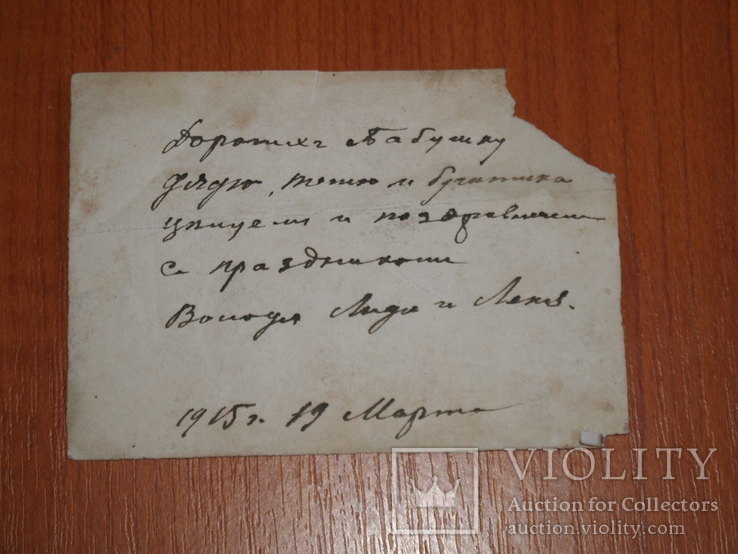 Дорогихъ Бабушку
дядю, тетю и
цѣлуемъ и поздравляемъ
съ праздникомъ
Володя Лида и Леня.
1915 г. 19 Марта
VIOLITY
Auction for Collectors
auction.violity.com